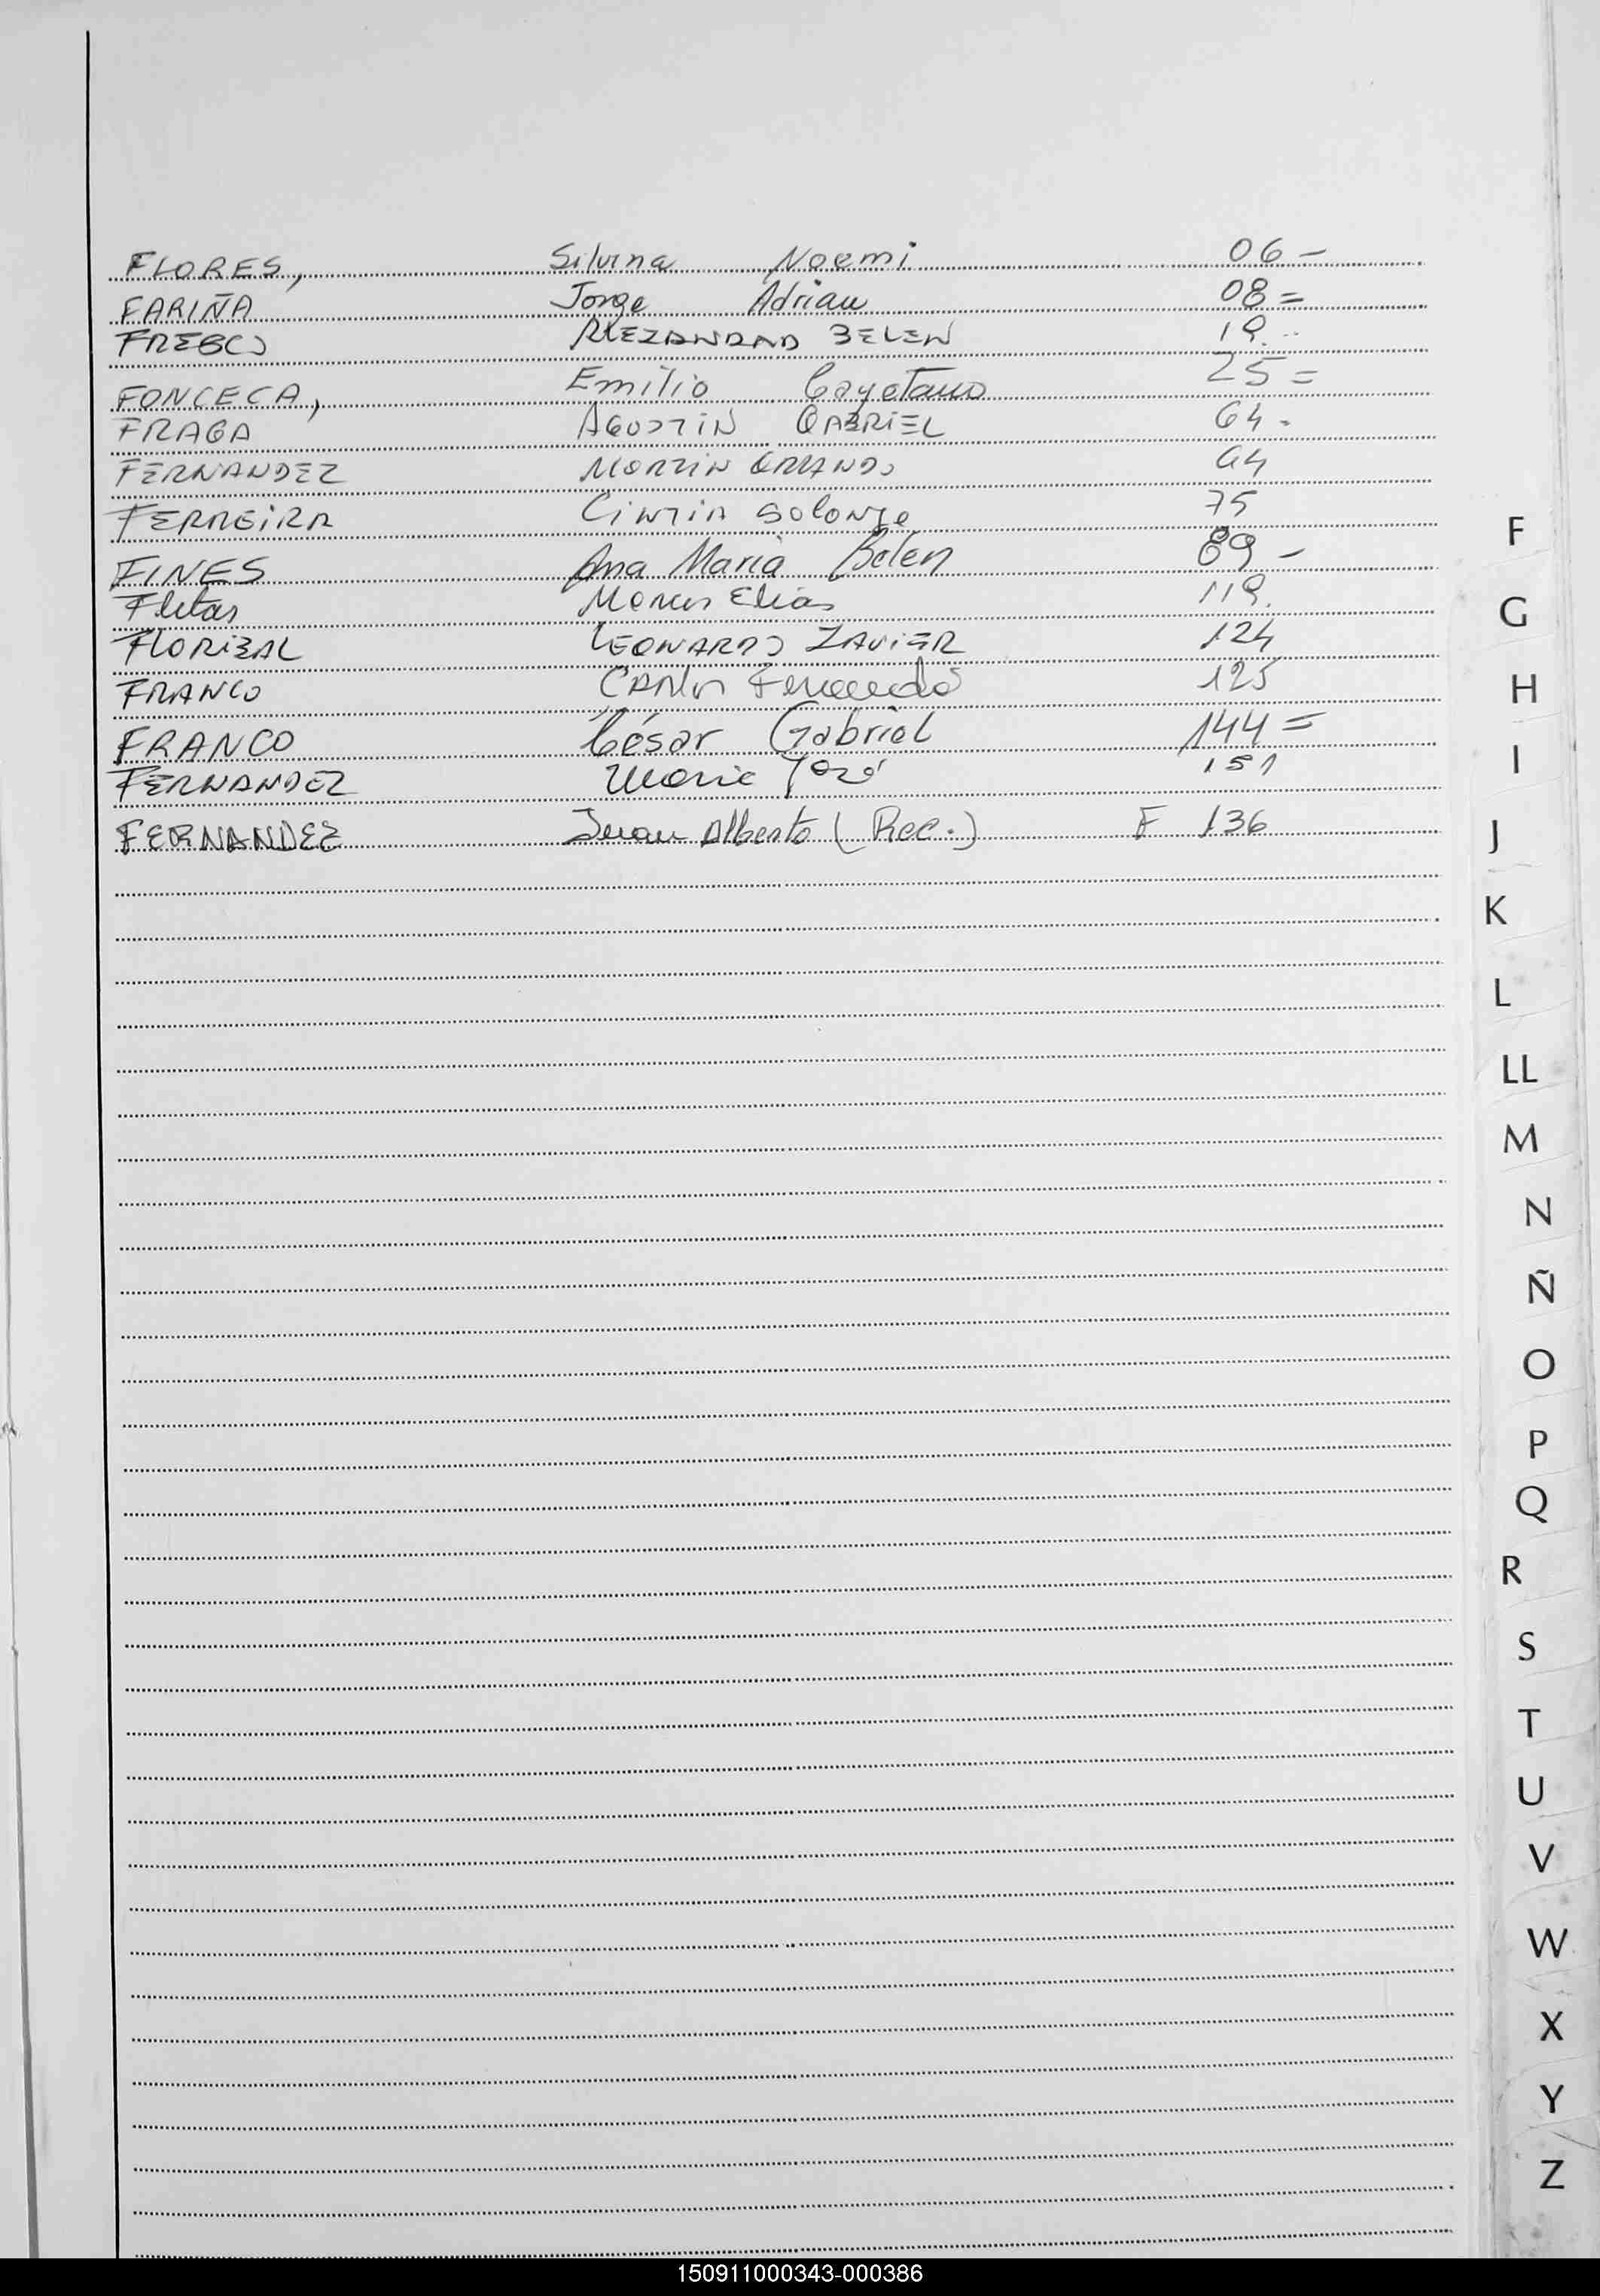 FLORES, Silvina Noemi 06 -
FARIÑA Jorge Adrian 08 =
BELEN 19.
FONCECA, Emilio Cayetano 25 =
FRAGA AGUSTIN GABRIEL 64 -
FERNANDEZ
FERREIRA 75
FINES Ana Maria Belen 89 -
Fleitas Elias 119.
LEONARDO 124
FRANCO Carlos Fernando 125
FRANCO César Gabriel 144 =
FERNANDEZ Maria José 151
FERNANDEZ Juan Alberto (Rec.) F 136
F
G
H
I
J
K
L
LL
M
N
Ñ
O
P
Q
R
S
T
U
V
W
X
Y
Z
150911000343-000386